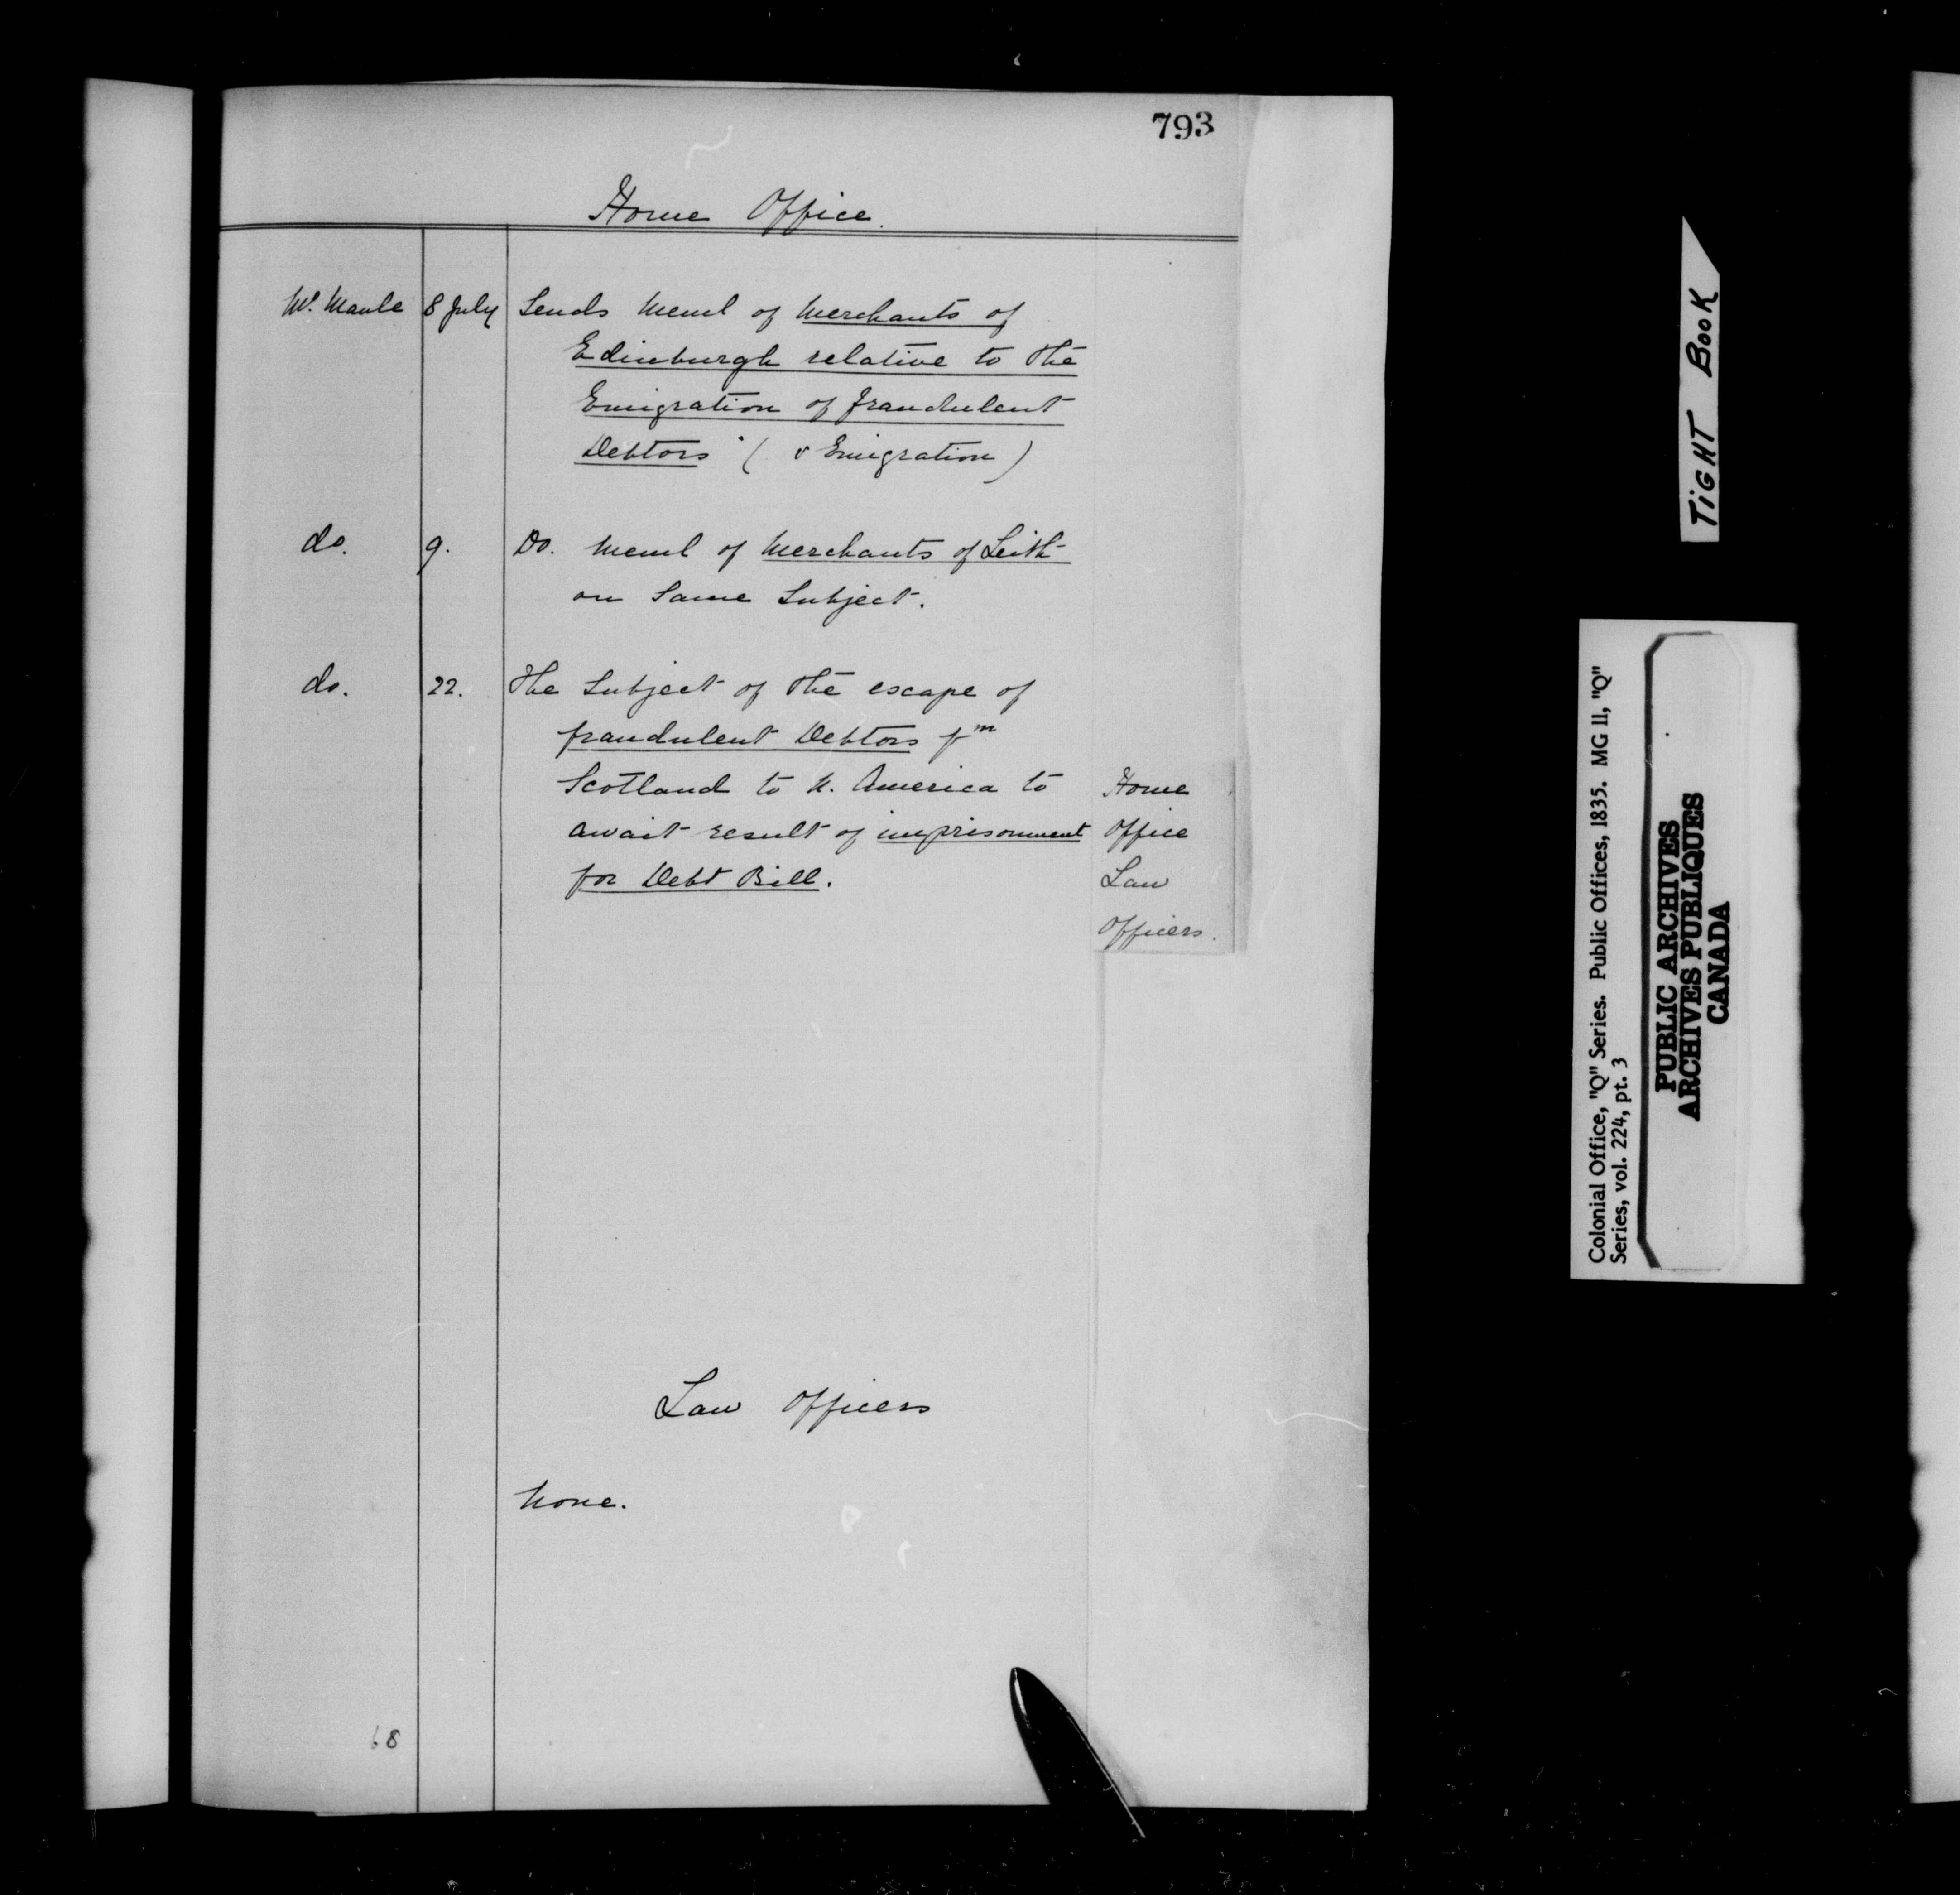 793
Home Office.
Mr. Maule 8 July Sends Meml of Merchants of
Edinburgh relative to the
Emigration of fraudulent
Debtors (v Emigration)
do. 9. Do. Meml of Merchants of Leith
on Same Subject.
do. 22. The Subject of the escape of
fraudulent Debtors fm
Scotland to N. America to
await result of imprisonment
for Debt Bill.
Home
Office
Law
Officers.
Law Officers
None.
68
TIGHT BOOK
Colonial Office, "Q" Series. Public Offices, 1835. MG 11, "Q"
Series, vol. 224, pt. 3
PUBLIC ARCHIVES
ARCHIVES PUBLIQUES
CANADA